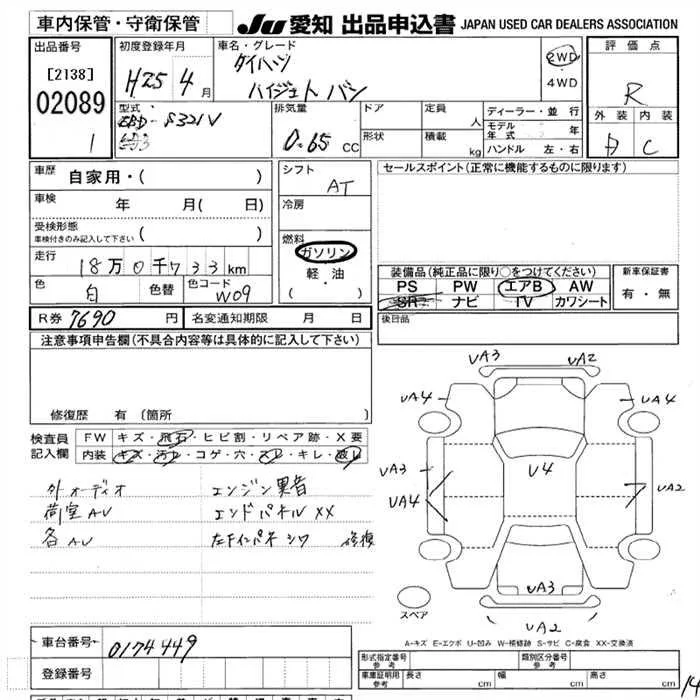 車内保管・守衛保管
JU 愛知 出品申込書 JAPAN USED CAR DEALERS ASSOCIATION
出品番号
[2138]
02089
1
初度登録年月
H25 4月
車名・グレード
ダイハツ
ハイジェット バン
2WD
4WD
評価点
R
外装 内装
C
型式
EBD- S321V
排気量
0.65 cc
ドア
形状
定員 人
積載 kg
ディーラー・並行
モデル年式 年
ハンドル 左・右
車歴 自家用・( )
車検 年 月( 日)
受検形態
車検付きのみ記入して下さい ( )
走行 18万0千733km
色 白 色替 色コード W09
シフト AT
冷房
燃料
ガソリン
軽・油
( ・ )
セールスポイント(正常に機能するものに限ります)
装備品(純正品に限り○をつけてください)
PS PW エアB AW
SR ナビ TV カワシート
新車保証書
有・無
R券 7690 円 名変通知期限 月 日
後日品
注意事項申告欄(不具合内容等は具体的に記入して下さい)
修復歴 有 (箇所
検査員記入欄
FW キズ・飛石・ヒビ割・リペア跡・X要
内装 キズ・汚レ・コゲ・穴・スレ・キレ・破レ
外オーディオ エンジン異音
荷室AU エンドパネルXX
各AU 左インパネシワ 修復
UA3 UA2
UA4 UA4
UA3 U4
UA4 UA2
UA3
UA2
スペア
A-キズ E-エクボ U-凹み W-補修跡 S-サビ C-腐食 XX-交換済
車台番号 0174449
登録番号
形式指定番号 参考
類別区分番号 参考
車庫証明用 参考 長さ cm 幅 cm 高さ cm
14